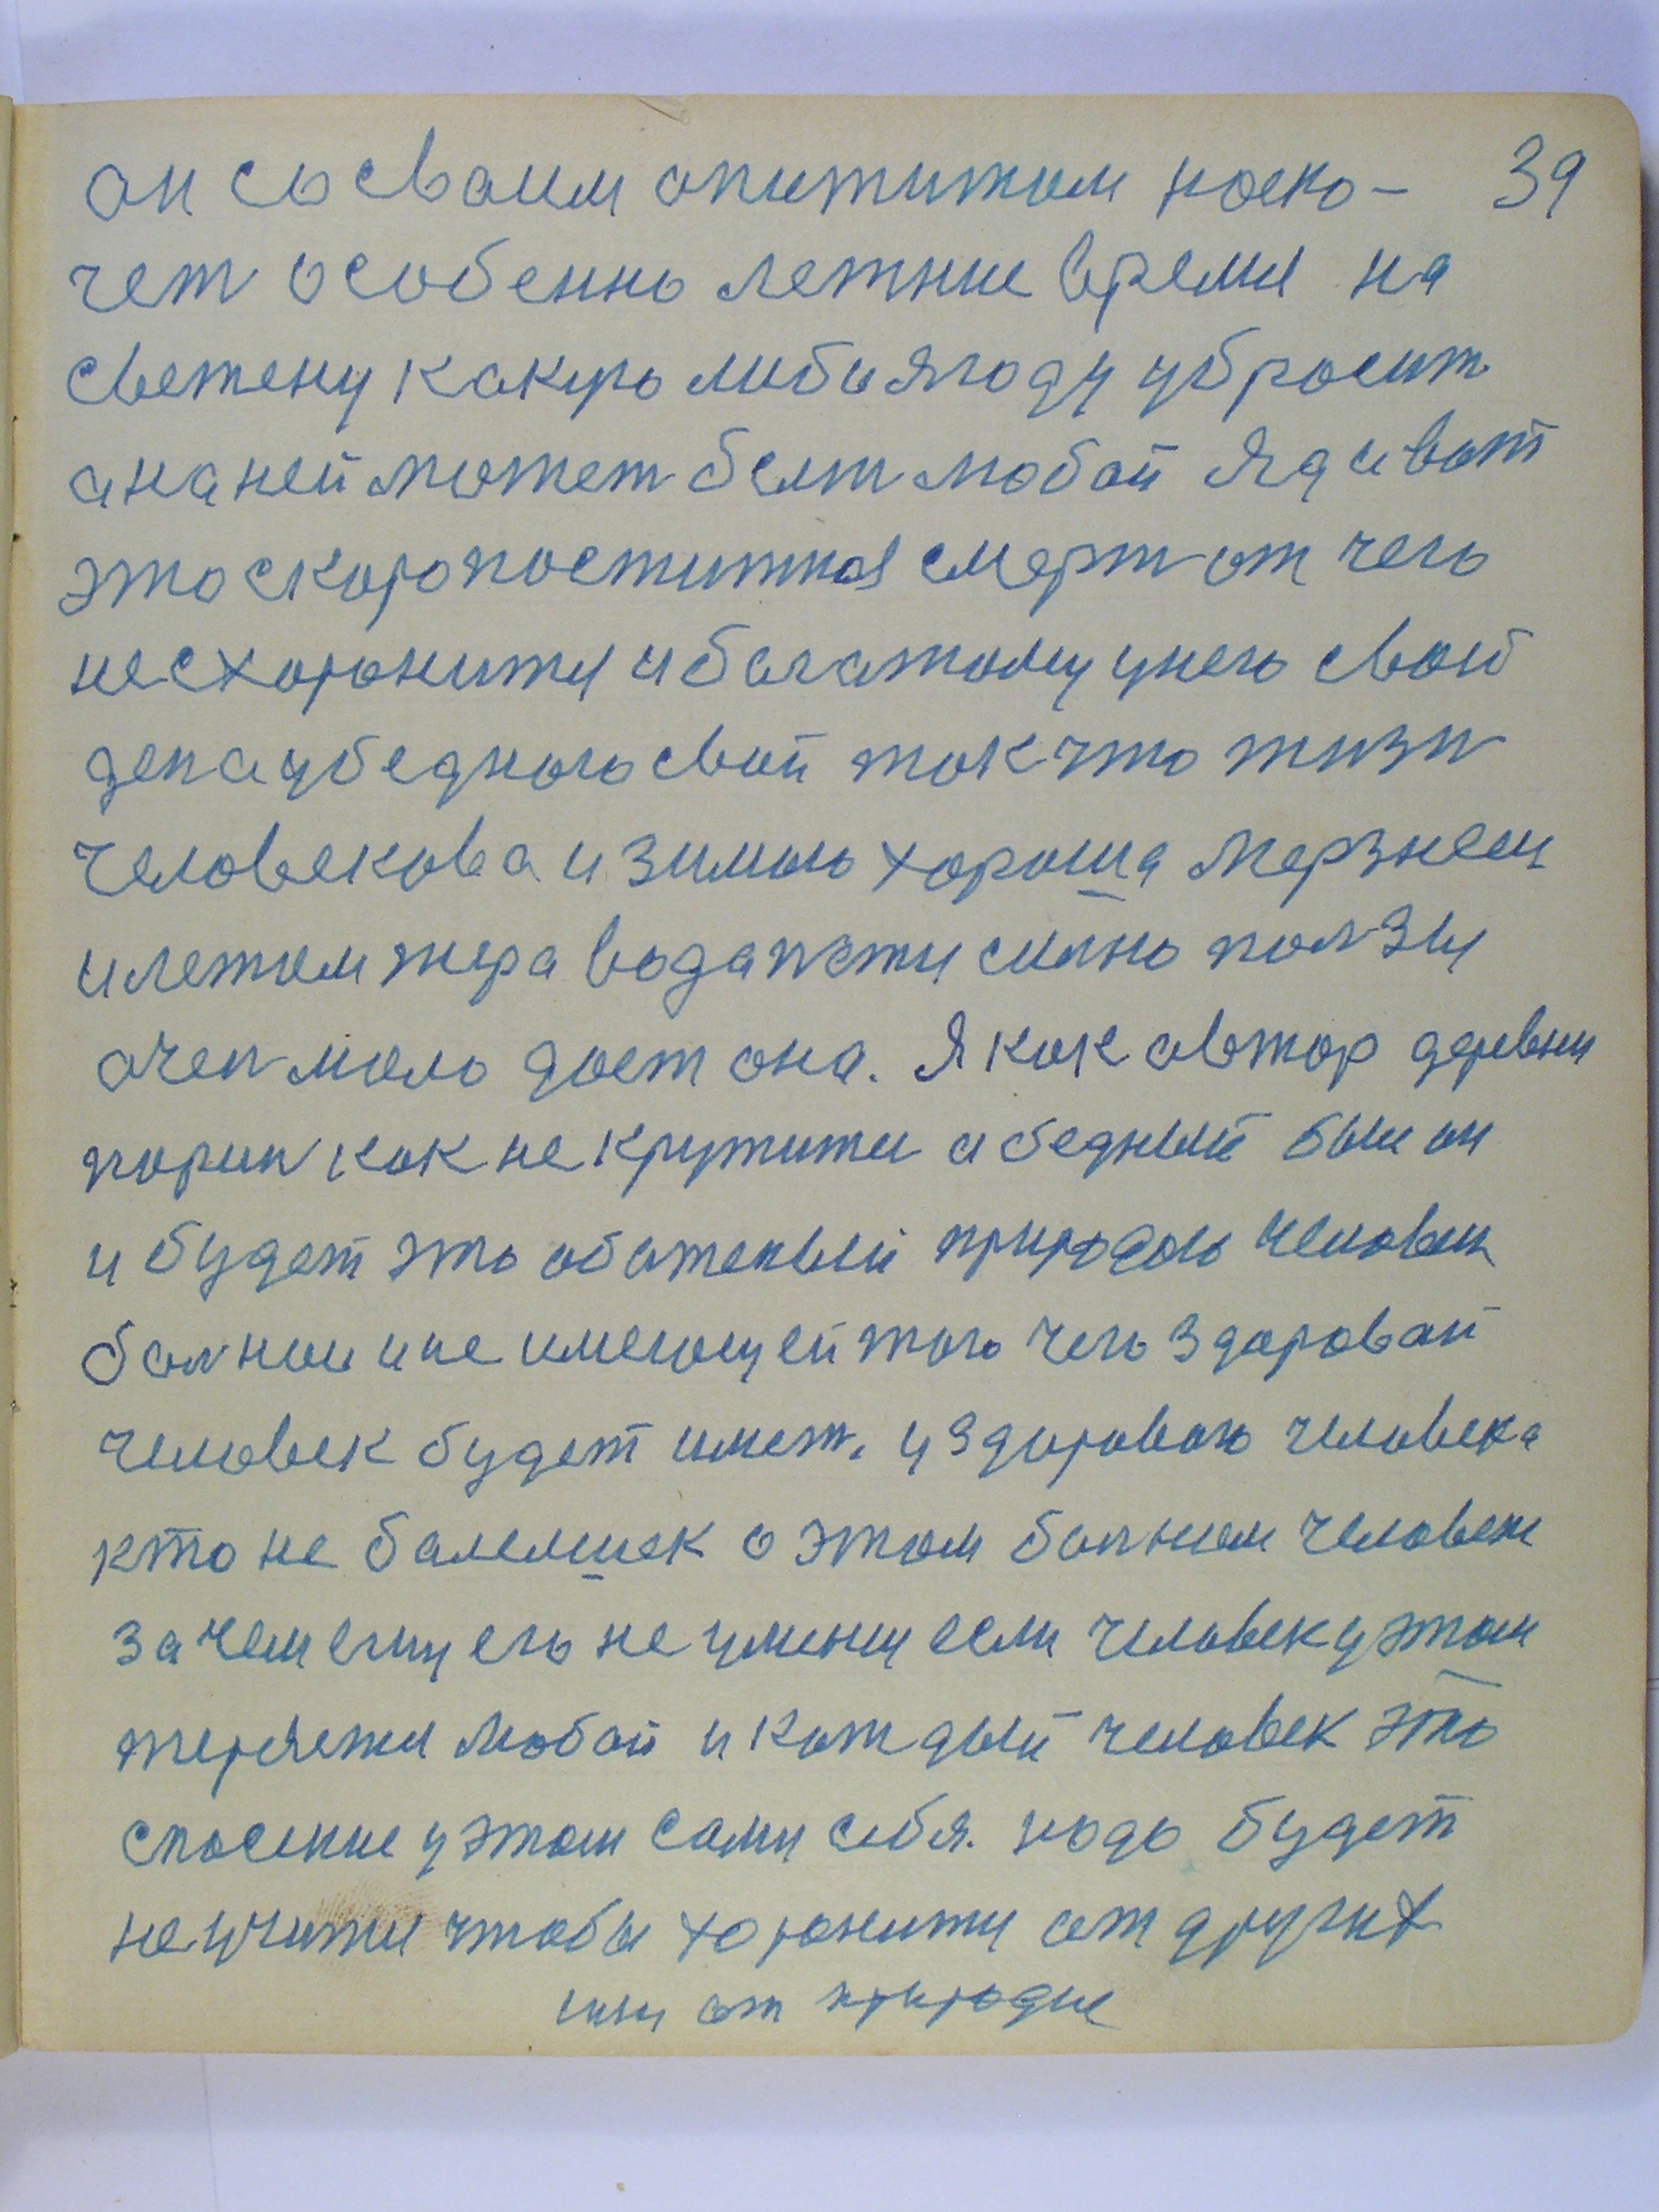 он со сваим апититом наско- 39
чет особенно летние время на
свежену какую либо ягоду убросит
а на ней может быт любой яд и вот
это скоропостижная смерт от чего
не схоронится и богатому у него свой
ден а у бедного свой так что жизн
человекова и зимою хороша мерзнеш
и летом жара вода пети силно ползы
очен мало дает она. Я как автор деревни
как не кружитии а бедный был он
и будет это обиженый природою человек
болной и не имеющей того чего здоровай
человек будет имет. у здорового человека
кто не
болном человеке
зачем ему его не умению если человек у этом
теряется любой и каждый человек это
спасение у этом саму себя. надо будет
научится чтобы хоронится от других
или от природые